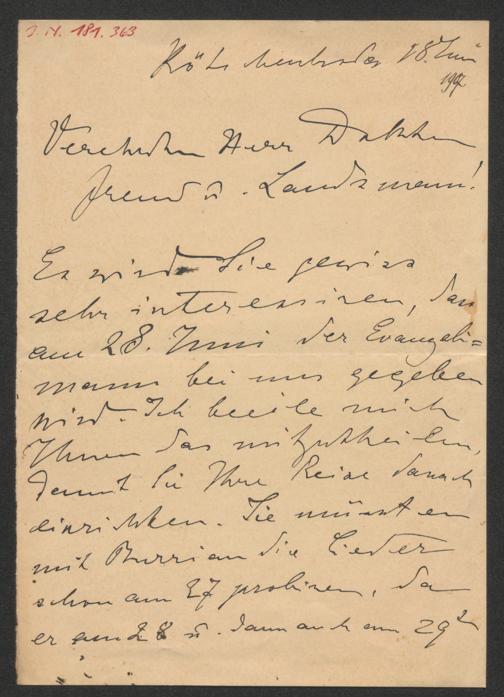 I. N. 181.363
Kötzschenbroda 18. Juni
190
Verehrter Herr Doktor
Freund u. Landsmann!
Es wird Sie gewiss
sehr interessiren, dass
am 28. Juni der Evangeli=
mann bei uns gegeben
wird. Ich beeile mich
Ihnen das mitzutheilen,
damit Sie Ihre Reise danach
einrichten. Sie müssten
mit Burrian die Lieder
schon am 27 probiren, da
er am 28 u. dann auch am 29